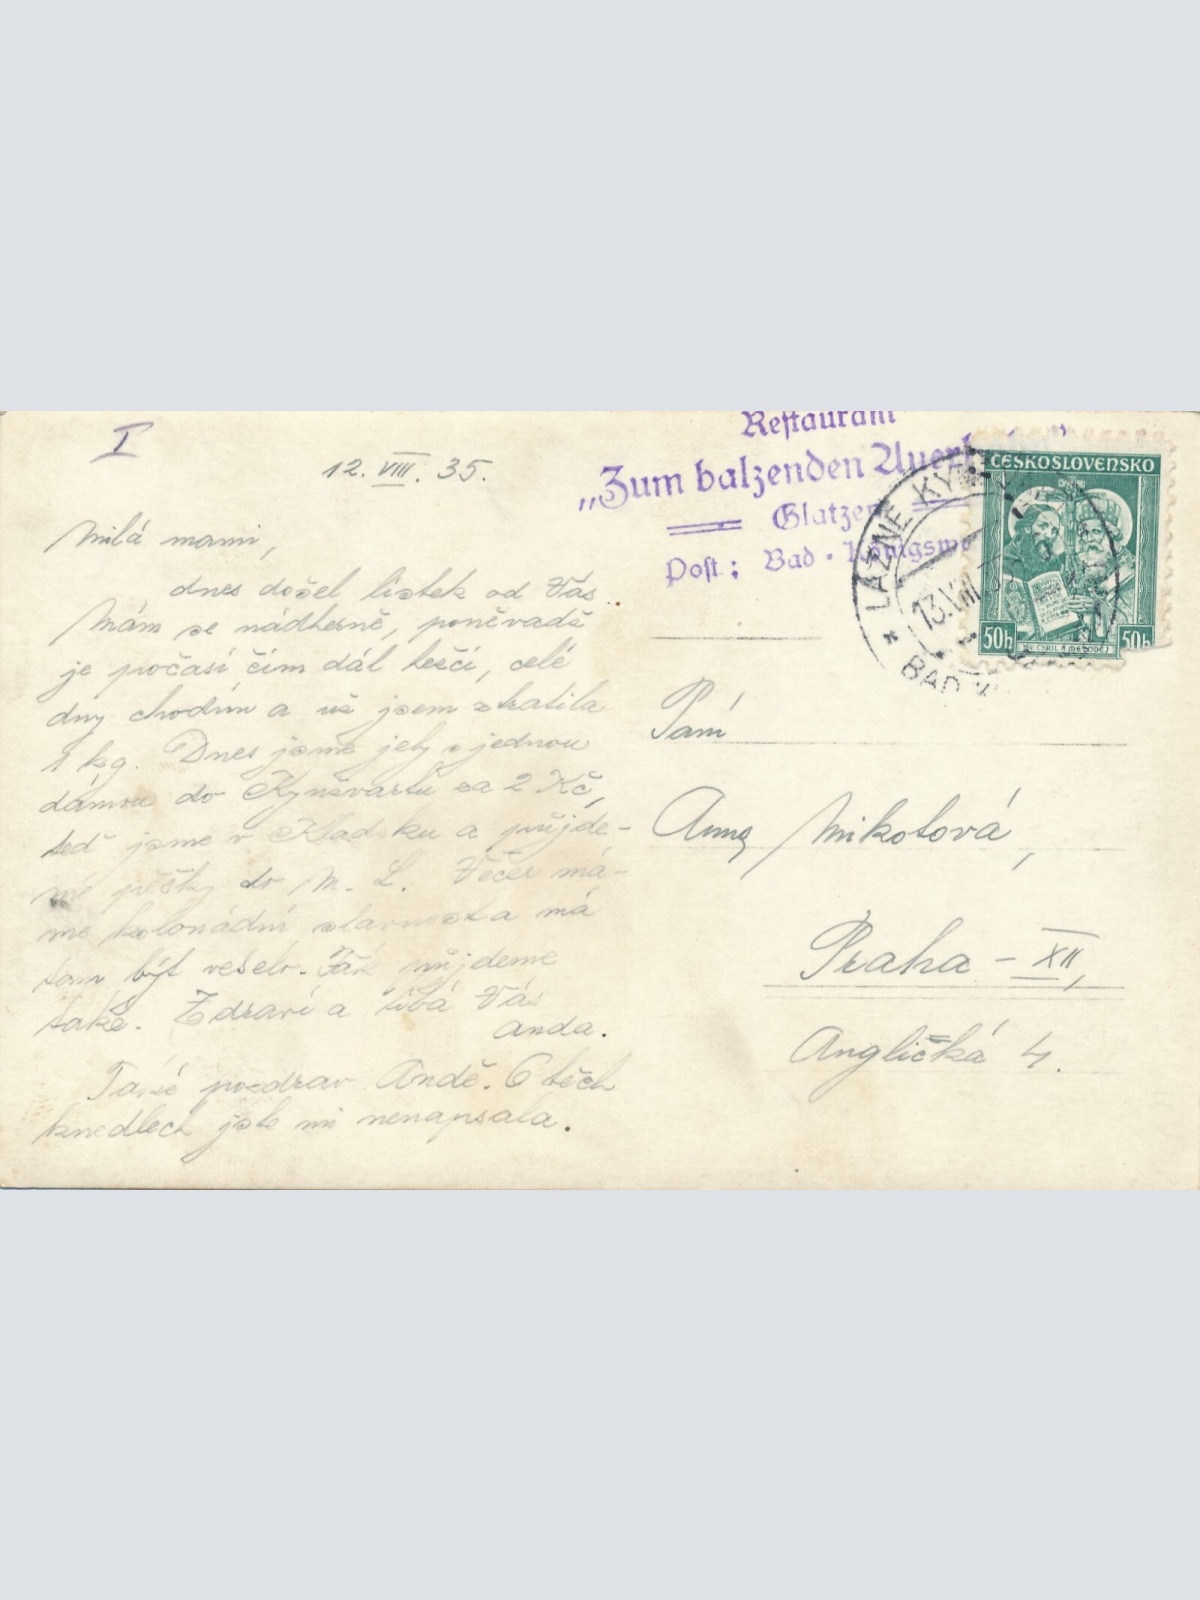 I
12. VIII. 35.
Milá mami,
dnes došel lístek od Vás.
Mám se nádherně, poněvadž
je počasí čím dál hezčí, celé
dny chodím a už jsem ztratila
1 kg. Dnes jsme jely s jednou
dámou do Kynžvartu za 2 Kč,
teď jsme v Kladsku a půjde-
me pěšky do M. L. Večer má-
me kolonádní slavnost a má
tam být veselo. Pak půjdeme
také. Zdraví a líbá Vás
Anda.
Také pozdrav Andě. O těch
knedlech jste mi nenapsala.
Restaurant
„Zum balzenden Auerhahn"
Glatzen
Post: Bad-Königswart
LÁZNĚ KYNŽVART
13.VIII.35
BAD
ČESKOSLOVENSKO
50h 50h
SV. CYRIL A METODĚJ
Paní
Anna Mikotová,
Praha - XII,
Anglická 4.